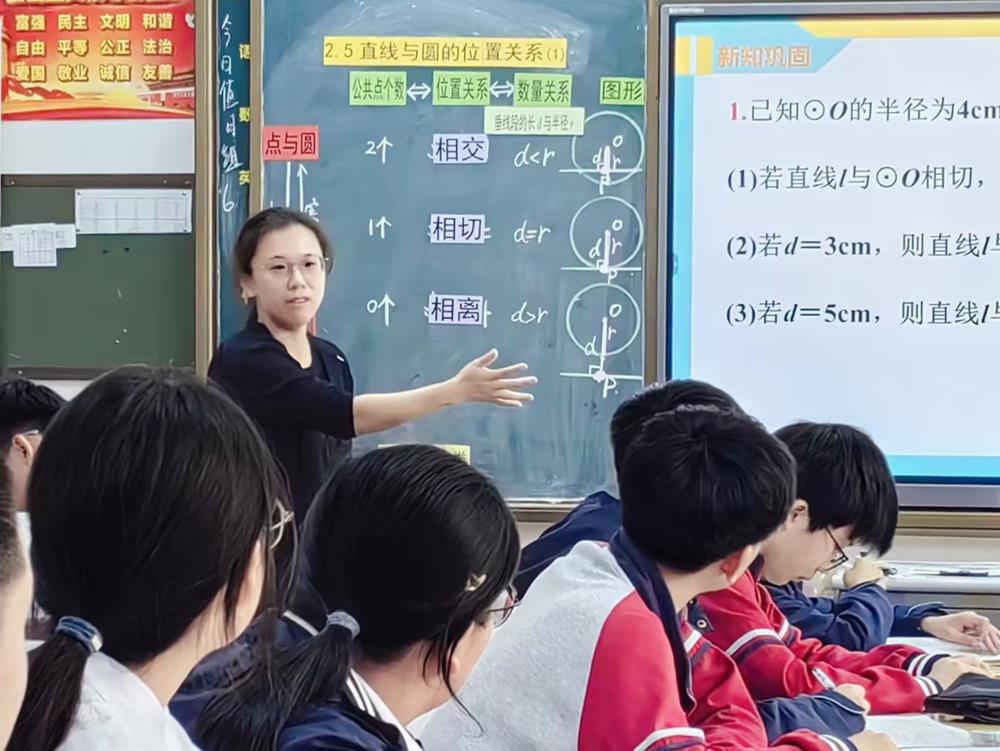 富强 民主 文明 和谐
自由 平等 公正 法治
爱国 敬业 诚信 友善
今日值日组6
语
数
英
2.5直线与圆的位置关系(1)
公共点个数⇔位置关系⇔数量关系 图形
垂线段的长d与半径r
点与圆
2个 相交 d<r
O
d
r
P
1个 相切 d=r
O
d
r
0个 相离 d>r
O
r
d
P
新知巩固
1.已知⊙O的半径为4cm
(1)若直线l与⊙O相切，
(2)若d=3cm，则直线l与
(3)若d=5cm，则直线l与